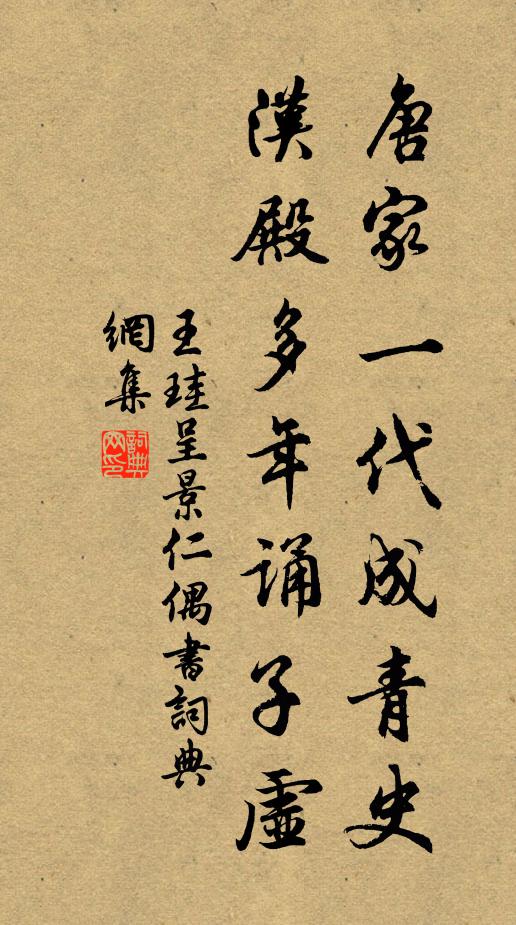 唐家一代成青史
漢殿多年誦子虛
王珪呈景仁偶書詞典
網集
詞典網印